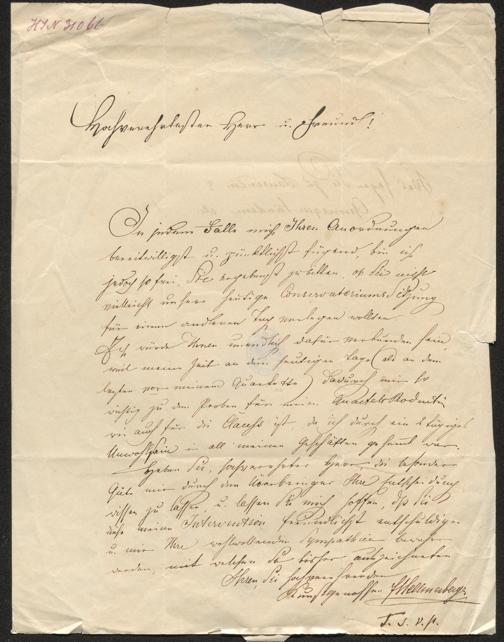 HIN 31066
Hochverehrtester Herr u. Freund!
In jedem Falle mich Ihren Anordnungen
bereitwilligst u. pünktlichst fügend, bin ich
jedoch so frei, Sie ergebenst zu bitten, ob Sie nicht
vielleicht unsere heutige Conservatoriumssitzung
für einen anderen Tag verlegen wollten.
Ich würde Ihnen unendlich dafür verbunden sein
weil meine Zeit an dem heutigen Tage (als an dem
letzten vor meinem Quartette)
wichtig zu den Proben für meine
wie auch für die ist, da ich durch ein 2tägiges
Unwohlsein in all meinen Geschäften gehemmt war.
Haben Sie, hochverehrter Herr, die besondere
Güte mir durch den Überbringer Ihre Entscheidung
wissen zu lassen u. lassen Sie mich hoffen, daß Sie
diese meine Intervention freundlichst entschuldigen
u. mir Ihre wohlwollenden Sympathien bewahren
werden, mit welchen Sie bisher auszeichneten
Ihren, Sie hochverehrenden
Kunstgenossen JHellmesberger
T. S. V. P.